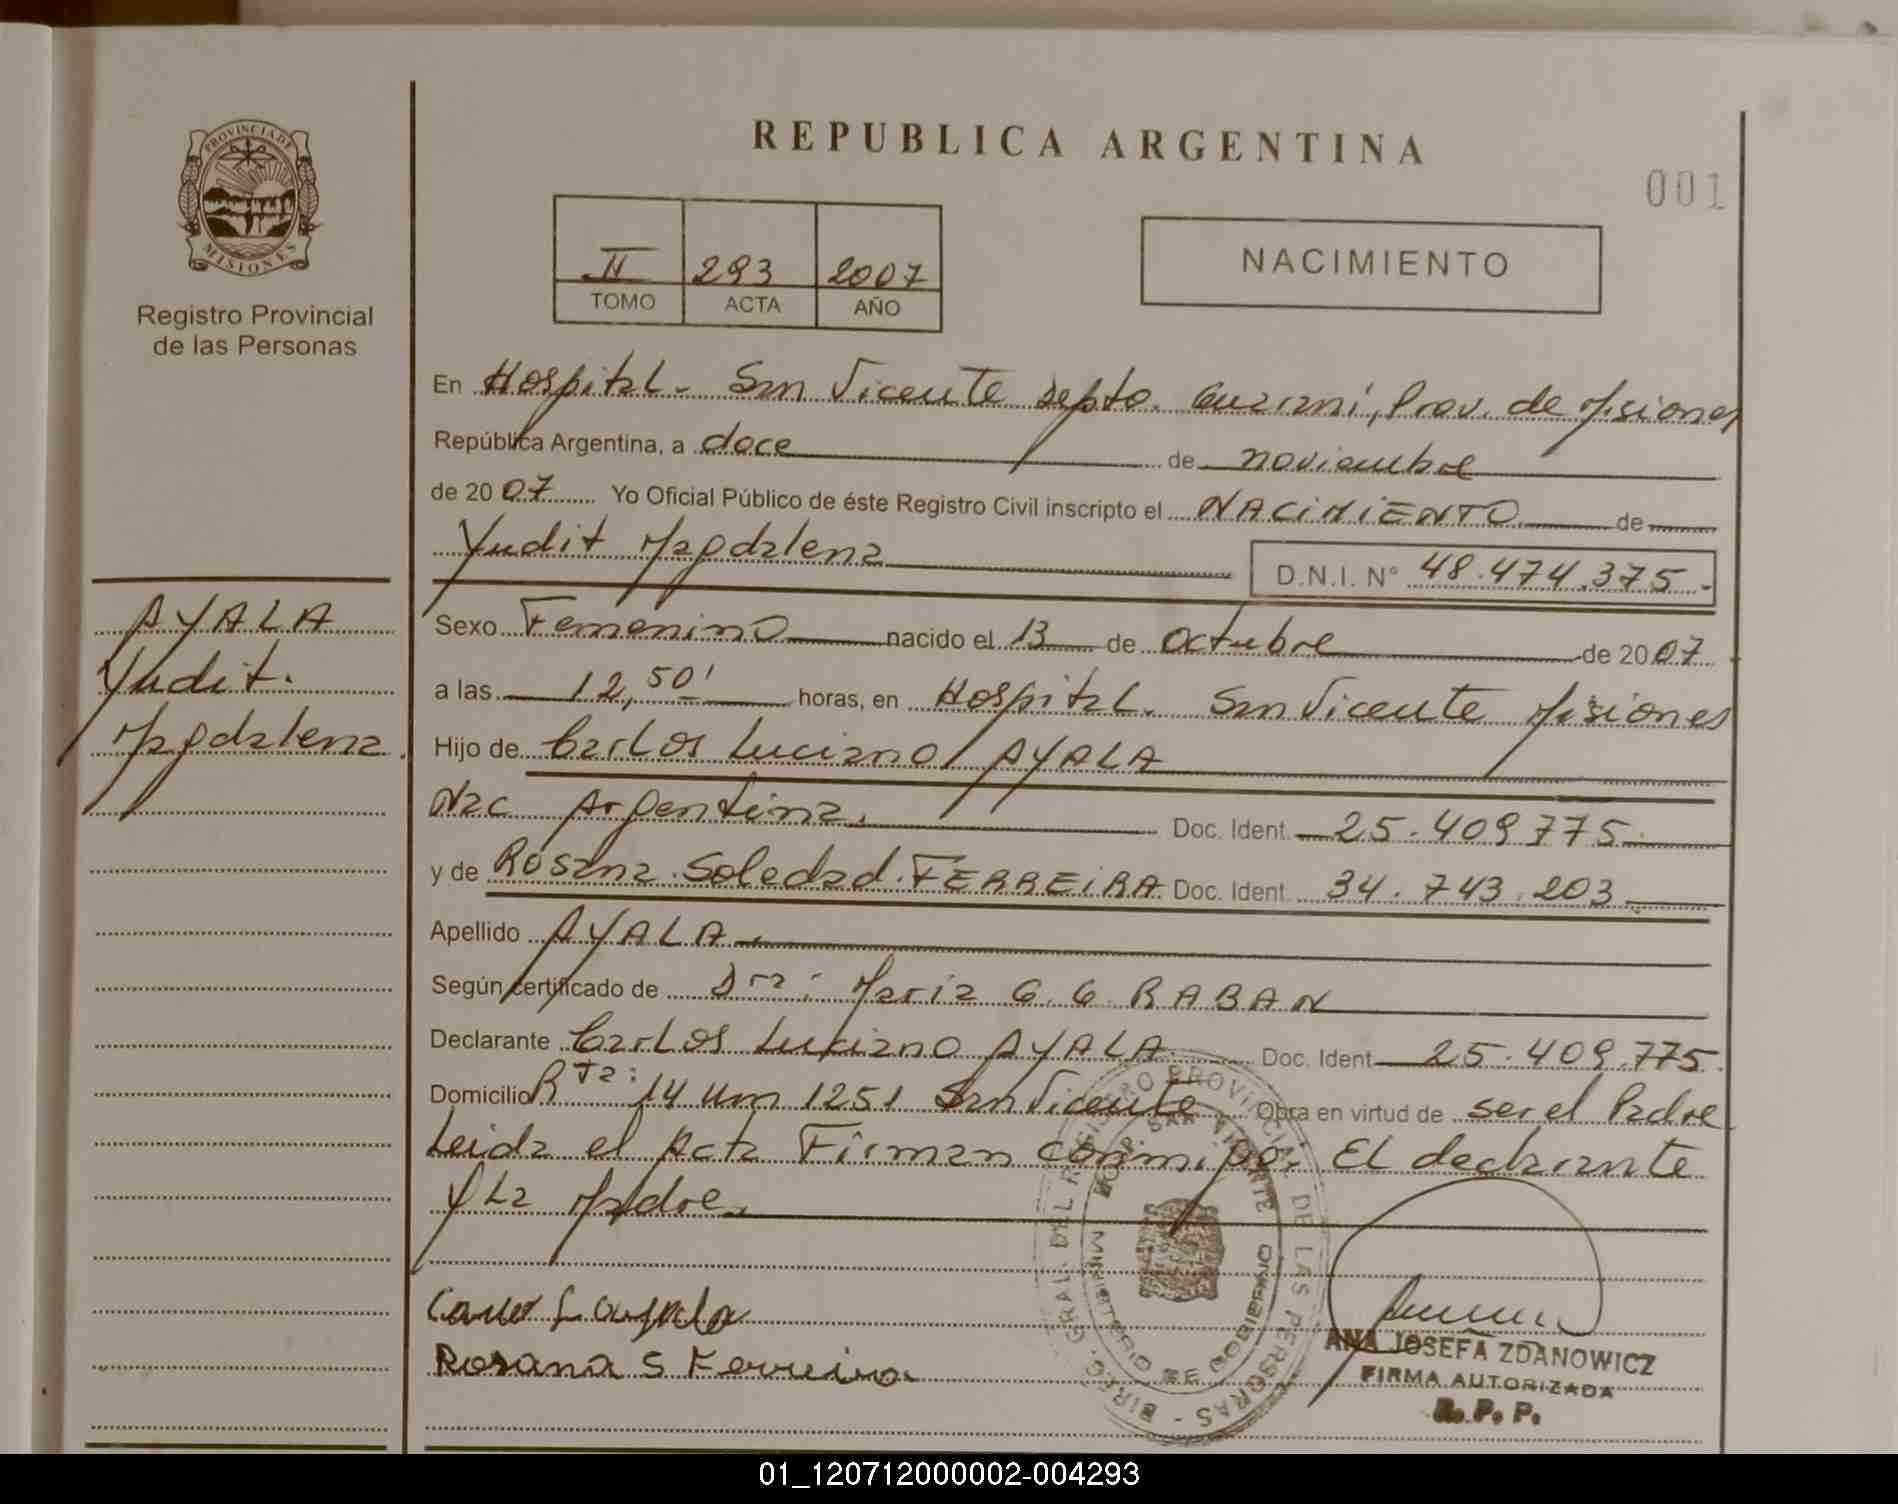 PROVINCIA DE
MISIONES
Registro Provincial
de las Personas
AYALA
Yudit.
Magdalena.
REPUBLICA ARGENTINA
001
II 293 2007
TOMO ACTA AÑO
NACIMIENTO
En Hospital - San Vicente depto. Guaraní, Prov. de Misiones
República Argentina, a doce de noviembre
de 2007 Yo Oficial Público de éste Registro Civil inscripto el NACIMIENTO de
Yudit Magdalena D.N.I. N° 48.474.375.-
Sexo Femenino nacido el 13 de octubre de 2007
a las 12,50' horas, en Hospital. San Vicente Misiones
Hijo de Carlos Luciano AYALA
Nac Argentina. Doc. Ident. 25.409.775.
y de Rosana Soledad. FERREIRA Doc. Ident. 34.743.203
Apellido AYALA.
Según certificado de Dra: María G. G. RABAN
Declarante Carlos Luciano AYALA Doc. Ident 25.409.775.
Domicilio Rta: 14 Km 1251 San Vicente Obra en virtud de ser el Padre
Leida el Acta Firman conmigo. El declarante
y La Madre.
Rosana S Ferreira.
ANA JOSEFA ZDANOWICZ
FIRMA AUTORIZADA
R. P. P.
01_120712000002-004293